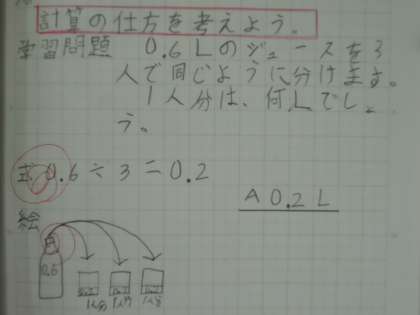 計算の仕方を考えよう。
学習問題 0.6Lのジュースを3
人で同じように分けます。
1人分は、何Lでしょ
う。
式 0.6÷3=0.2
A 0.2L
絵
0.6
1人分 1人分 1人分